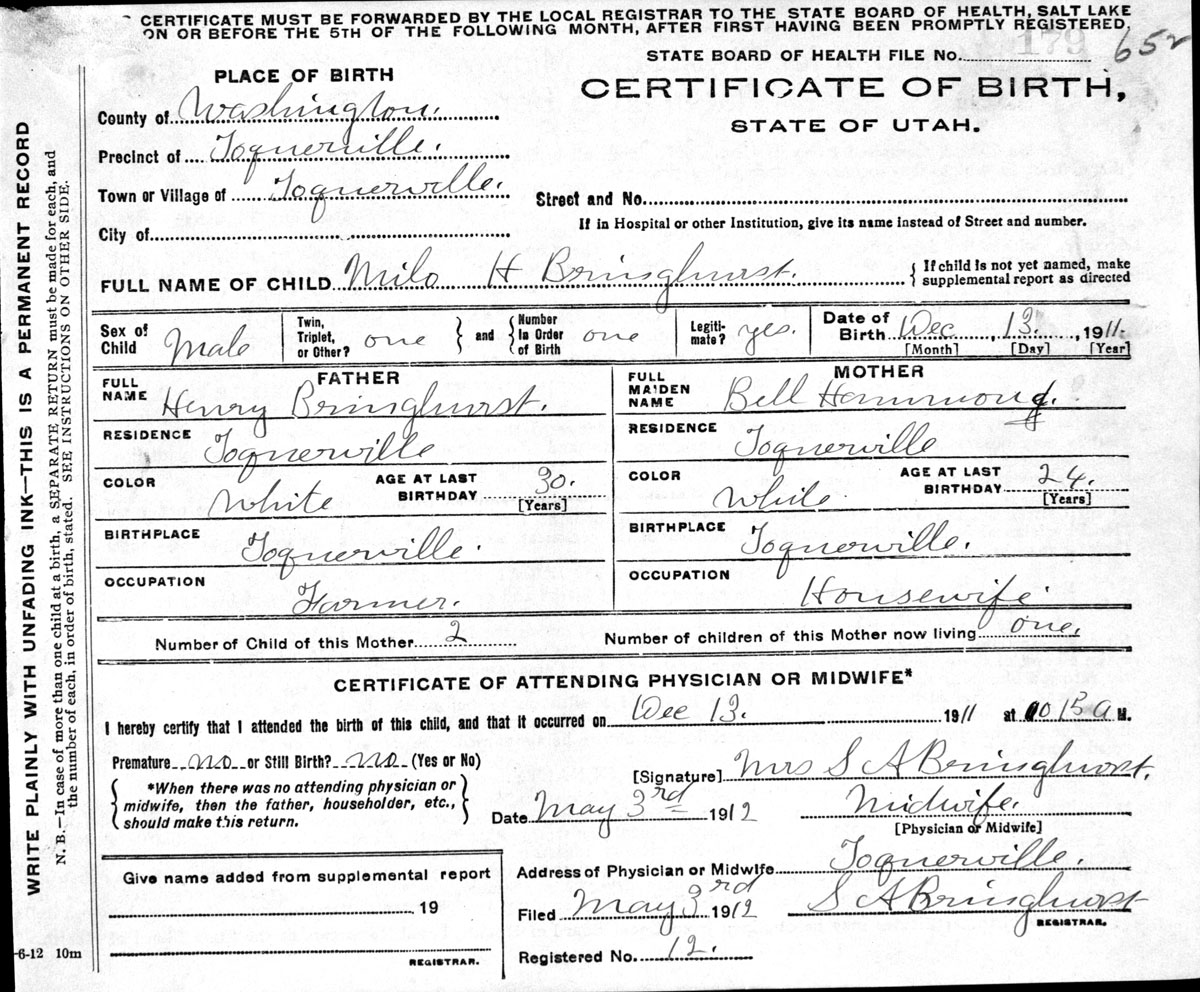 CERTIFICATE MUST BE FORWARDED BY THE LOCAL REGISTRAR TO THE STATE BOARD OF HEALTH, SALT LAKE
ON OR BEFORE THE 5TH OF THE FOLLOWING MONTH, AFTER FIRST HAVING BEEN PROMPTLY REGISTERED,
STATE BOARD OF HEALTH FILE No. 179 652
PLACE OF BIRTH
CERTIFICATE OF BIRTH,
STATE OF UTAH.
County of Washington.
Precinct of Toquerville.
Town or Village of Toquerville. Street and No.
City of If in Hospital or other Institution, give its name instead of Street and number.
FULL NAME OF CHILD Milo H Bringhurst. {If child is not yet named, make supplemental report as directed
Sex of Child Male Twin, Triplet, or Other? one } and { Number In Order of Birth one Legiti-mate? yes. Date of Birth Dec. 13., 1911.
[Month] [Day] [Year]
FATHER MOTHER
FULL NAME Henry Bringhurst. FULL MAIDEN NAME Bell Hammond.
RESIDENCE Toquerville RESIDENCE Toquerville
COLOR White AGE AT LAST BIRTHDAY 30. [Years] COLOR White. AGE AT LAST BIRTHDAY 24. [Years]
BIRTHPLACE Toquerville. BIRTHPLACE Toquerville.
OCCUPATION Farmer. OCCUPATION Housewife
Number of Child of this Mother 2 Number of children of this Mother now living one.
CERTIFICATE OF ATTENDING PHYSICIAN OR MIDWIFE*
I hereby certify that I attended the birth of this child, and that it occurred on Dec 13. 1911 at A M.
Premature no or Still Birth? no (Yes or No)
[Signature] Mrs S A Bringhurst.
{ *When there was no attending physician or midwife, then the father, householder, etc., should make this return. }
Date May 3rd 1912 Midwife.
[Physician or Midwife]
Give name added from supplemental report
Address of Physician or Midwife Toquerville.
19
Filed May 3rd 1912 S A Bringhurst
REGISTRAR.
-6-12 10m REGISTRAR.
Registered No. 12.
WRITE PLAINLY WITH UNFADING INK—THIS IS A PERMANENT RECORD
N. B.—In case of more than one child at a birth, a SEPARATE RETURN must be made for each, and
the number of each, in order of birth, stated. SEE INSTRUCTIONS ON OTHER SIDE.